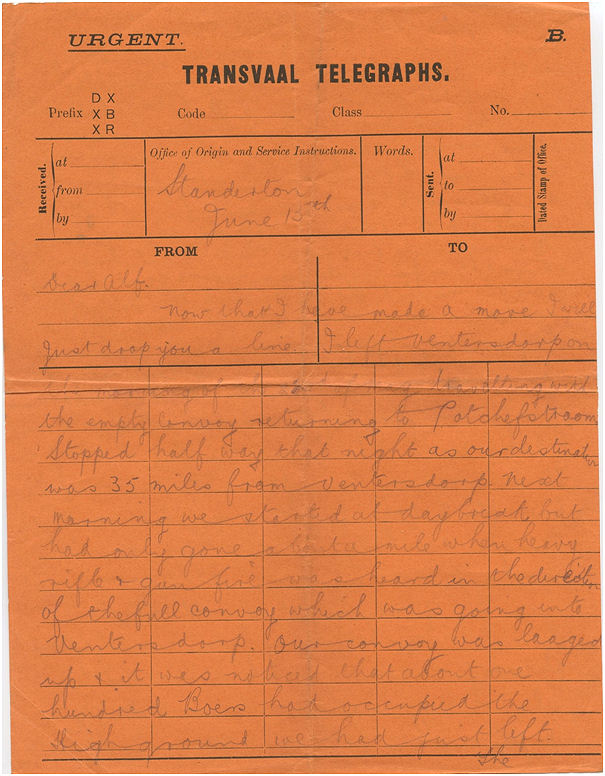 URGENT.
B.
TRANSVAAL TELEGRAPHS.
Prefix DX XB XR Code Class No.
Received. at from by
Office of Origin and Service Instructions.
Words.
Sent. at to by
Dated Stamp of Office.
Standerton
June 15th
FROM TO
Dear Alf.
Now that I have made a move I will
just drop you a line. I left Ventersdorp on
the morning of the of travelling with
the empty convoy returning to Potchefstroom
Stopped half way that night as our destination
was 35 miles from Ventersdorp. Next
morning we started at daybreak but
had only gone about a mile when heavy
rifle & gun fire was heard in the direction
of the full convoy which was going into
Ventersdorp. Our convoy was laaged
up & it was noticed that about one
hundred Boers had occupied the
High ground we had just left.
The